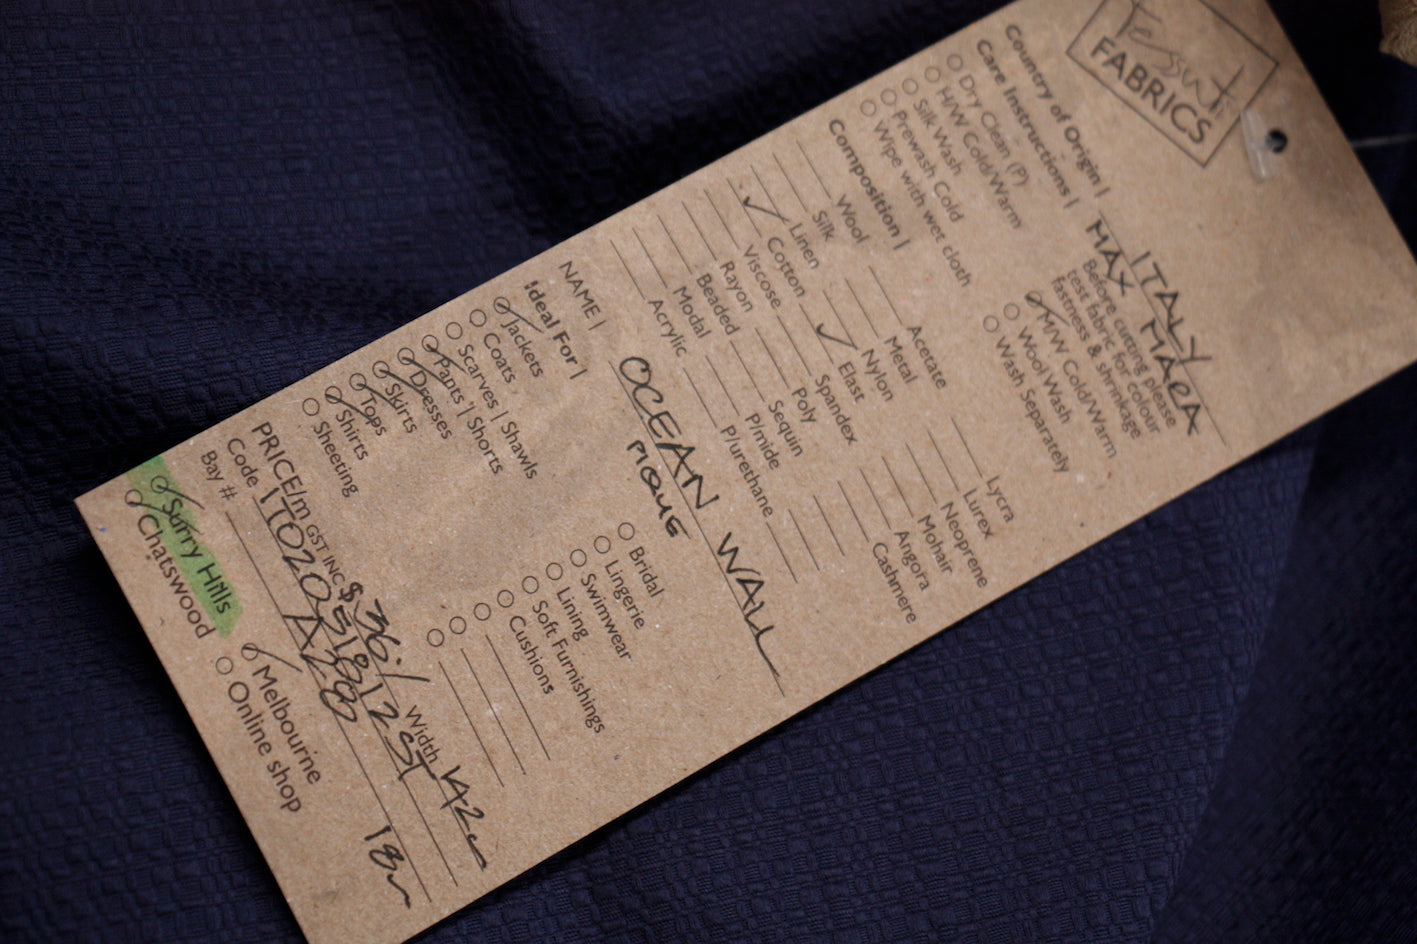 Tessuti
FABRICS
Country of Origin | ITALY
MAX MARA
Care Instructions |
Before cutting please
test fabric for colour
fastness & shrinkage
Dry Clean (P)
H/W Cold/Warm
Silk Wash
Prewash Cold
Wipe with wet cloth
M/W Cold/Warm
Wool Wash
Wash Separately
Composition |
Wool
Silk
Linen
✓ Cotton
Viscose
Rayon
Beaded
Modal
Acrylic
Acetate
Metal
Nylon
✓ Elast
Spandex
Poly
Sequin
P/mide
P/urethane
Lycra
Lurex
Neoprene
Mohair
Angora
Cashmere
NAME | OCEAN WALL
PIQUE
Ideal For |
Jackets
Coats
Scarves | Shawls
Pants | Shorts
Dresses
Skirts
Tops
Shirts
Sheeting
Bridal
Lingerie
Swimwear
Lining
Soft Furnishings
Cushions
PRICE/m GST INC $36 Width 142c
Code
Bay # 18m
Surry Hills
Chatswood
Melbourne
Online shop